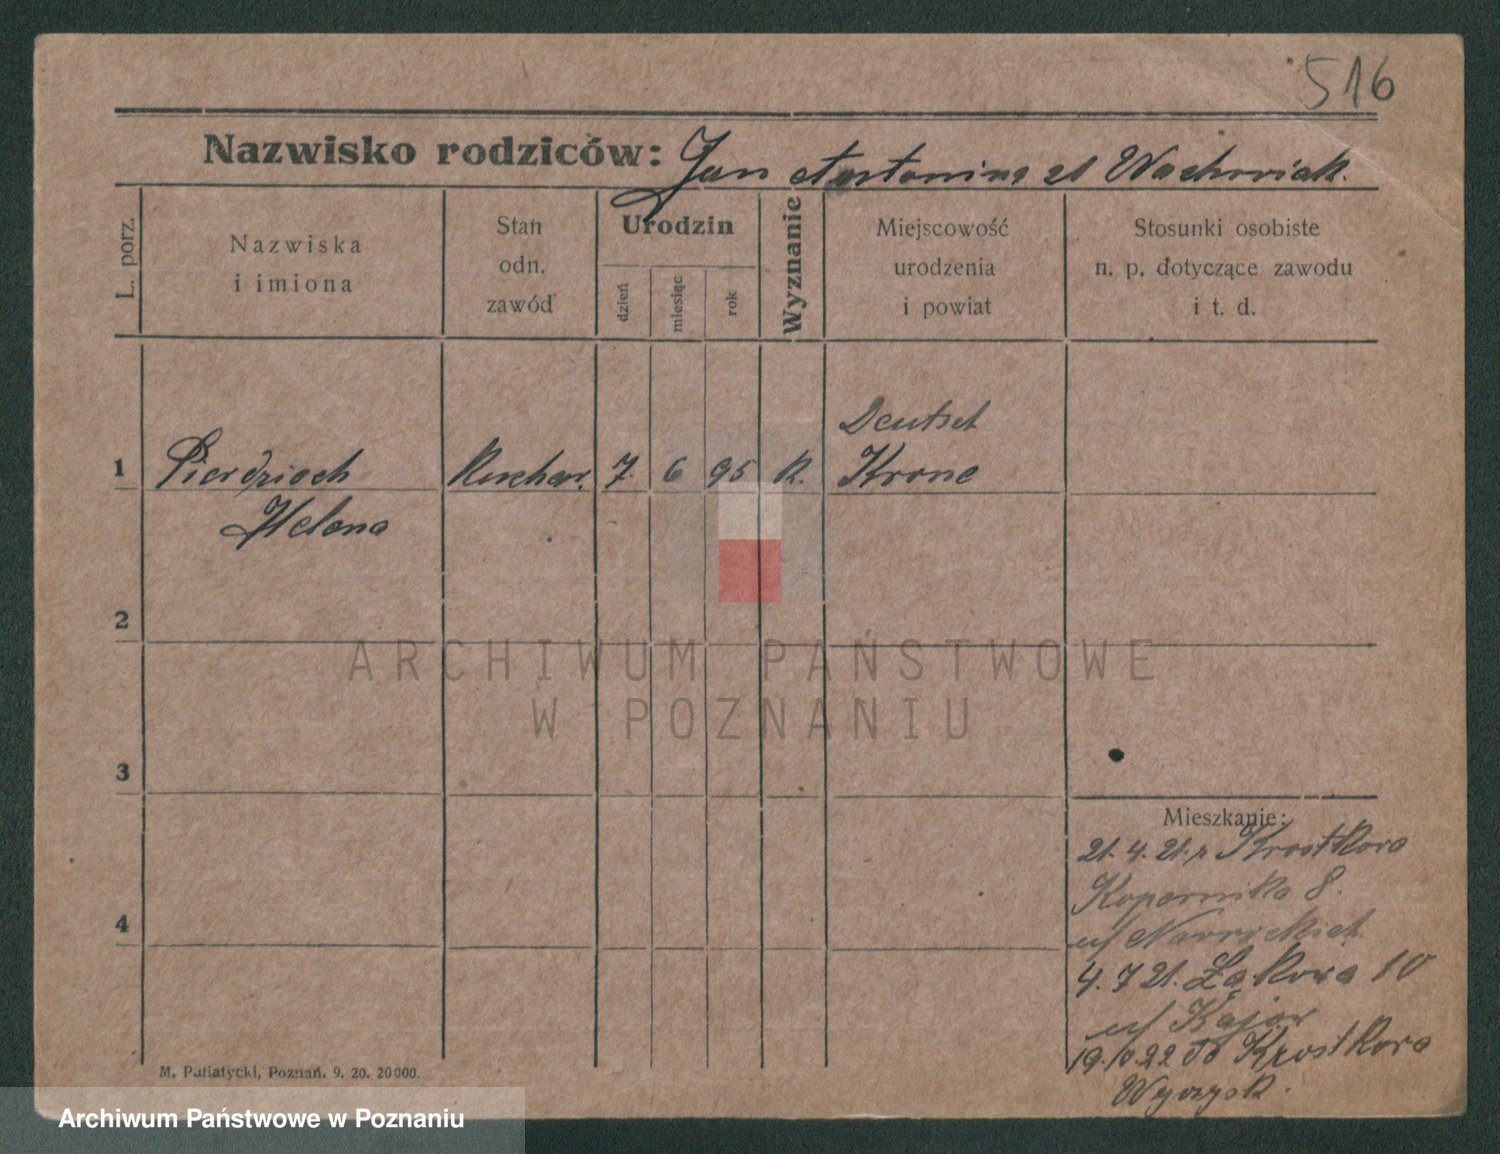 516
Nazwisko rodziców: Jan Antonina zd Wachowiak.
L. porz.
Nazwiska
i imiona
Stan
odn.
zawód
Urodzin
dzień
miesiąc
rok
Wyznanie
Miejscowość
urodzenia
i powiat
Stosunki osobiste
n. p. dotyczące zawodu
i t. d.
Deutsch
1 Pierdzioch Kuchar. 7. 6 95 K. Krone
Helena
2
ARCHIWUM PAŃSTWOWE
W POZNANIU
3
4
Mieszkanie:
21. 4. 21. z Krostkowa
Kopernika 8.
u/
4. 7 21. Łąkowa 10
u/ Kajar
19.10.22 do Krostkowa
Wyrzysk.
M. Putiatycki, Poznań. 9. 20. 20000.
Archiwum Państwowe w Poznaniu